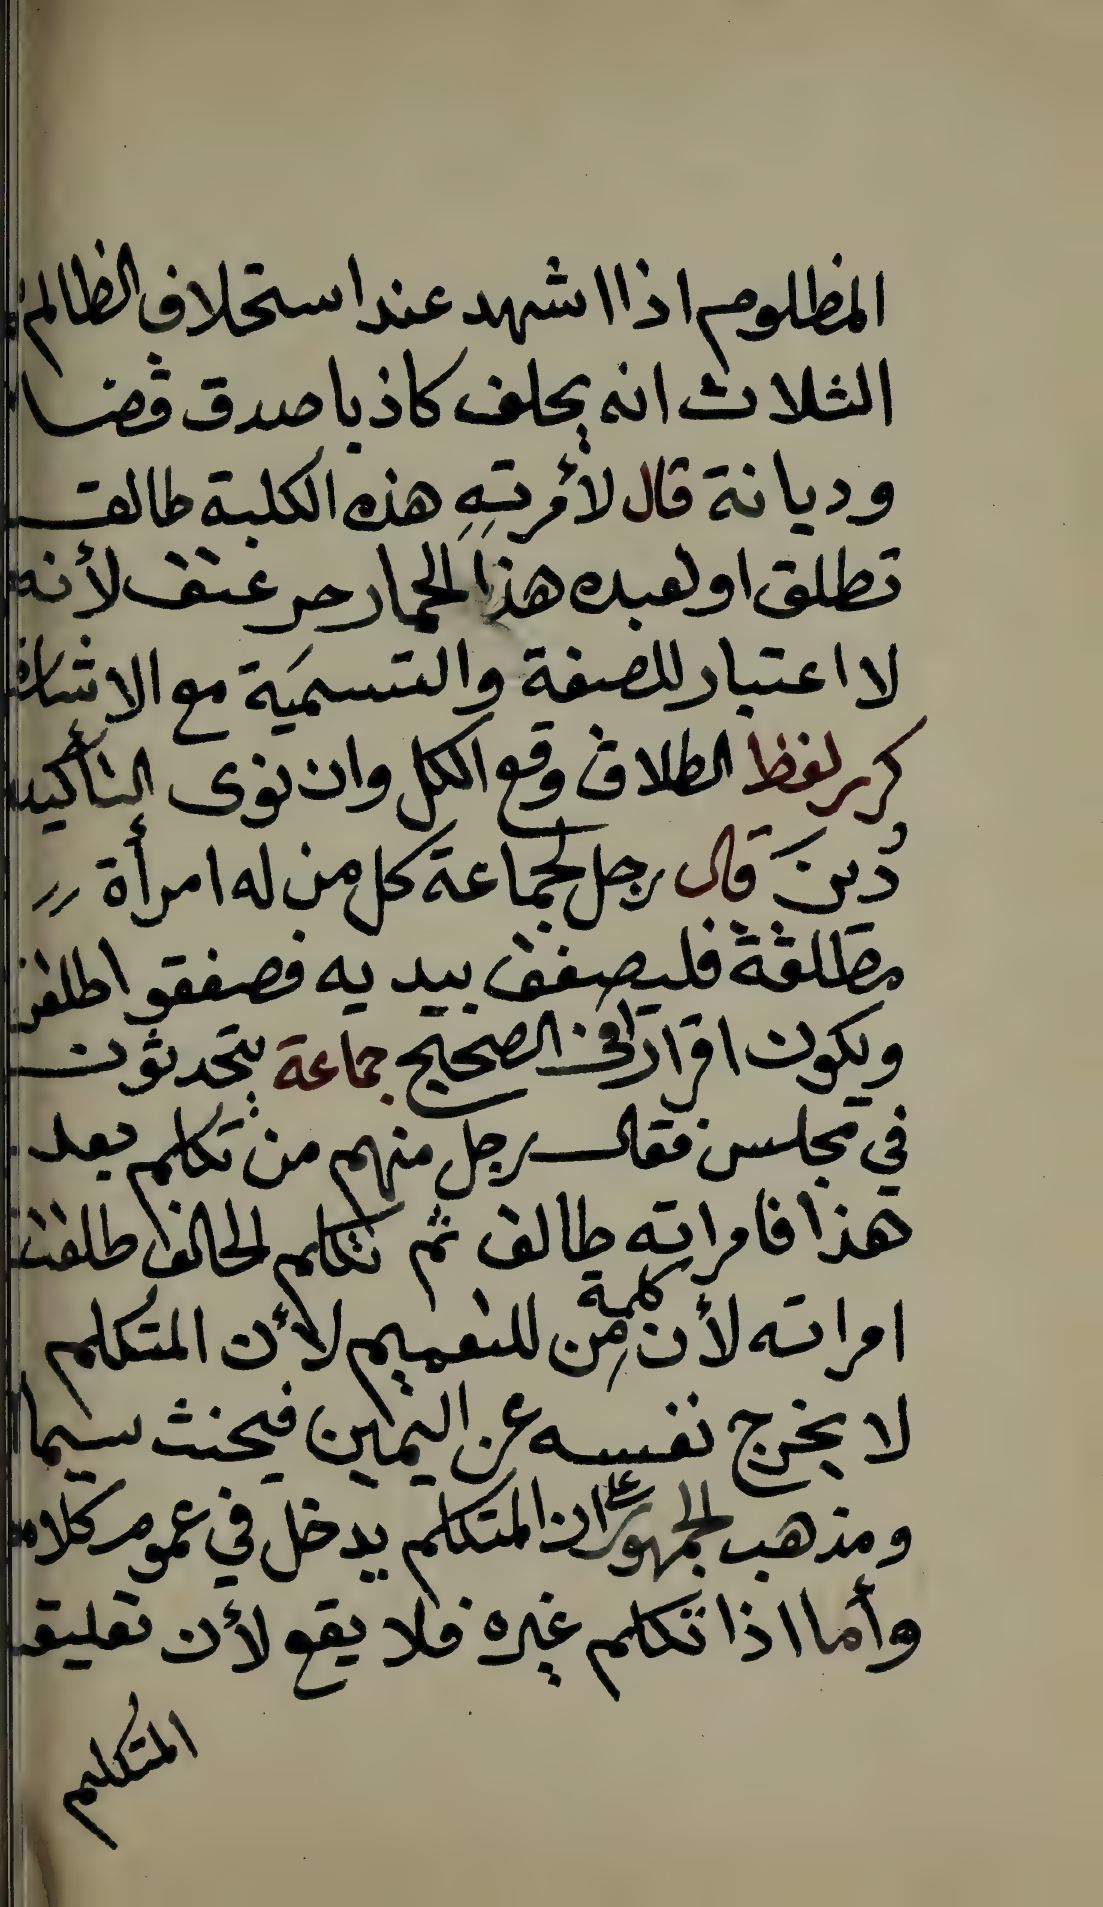 المظلوم اذا اشهد عند استحلاف الظالم
الثلاث انه يحلف كاذبا صدق قضا
وديانة قال لأمرته هذه الكلبة طالق
تطلق او لعبده هذا الحمار حر عتق لأنه
لا اعتبار للصفة والتسمية مع الاشارة
كرر لفظ الطلاق وقع الكل وان نوى التأكيد
دُينَ قال رجل لجماعة كل من له امرأة
مطلقة فليصفق بيديه فصفقوا طلقن
ويكون اقرارا في الصحيح جماعة يتحدثون
في مجلس فقال رجل منهم من تكلم بعد
هذا فامراته طالق ثم تكلم الحالف طلقت
امراته لأن كلمة مِن للتعميم لأن المتكلم
لا يخرج نفسه عن اليمين فيحنث سيما
ومذهب الجمهور على ان المتكلم يدخل في عموم كلامه
وأما اذا تكلم غيره فلا يقع لأن تعليق
المتكلم